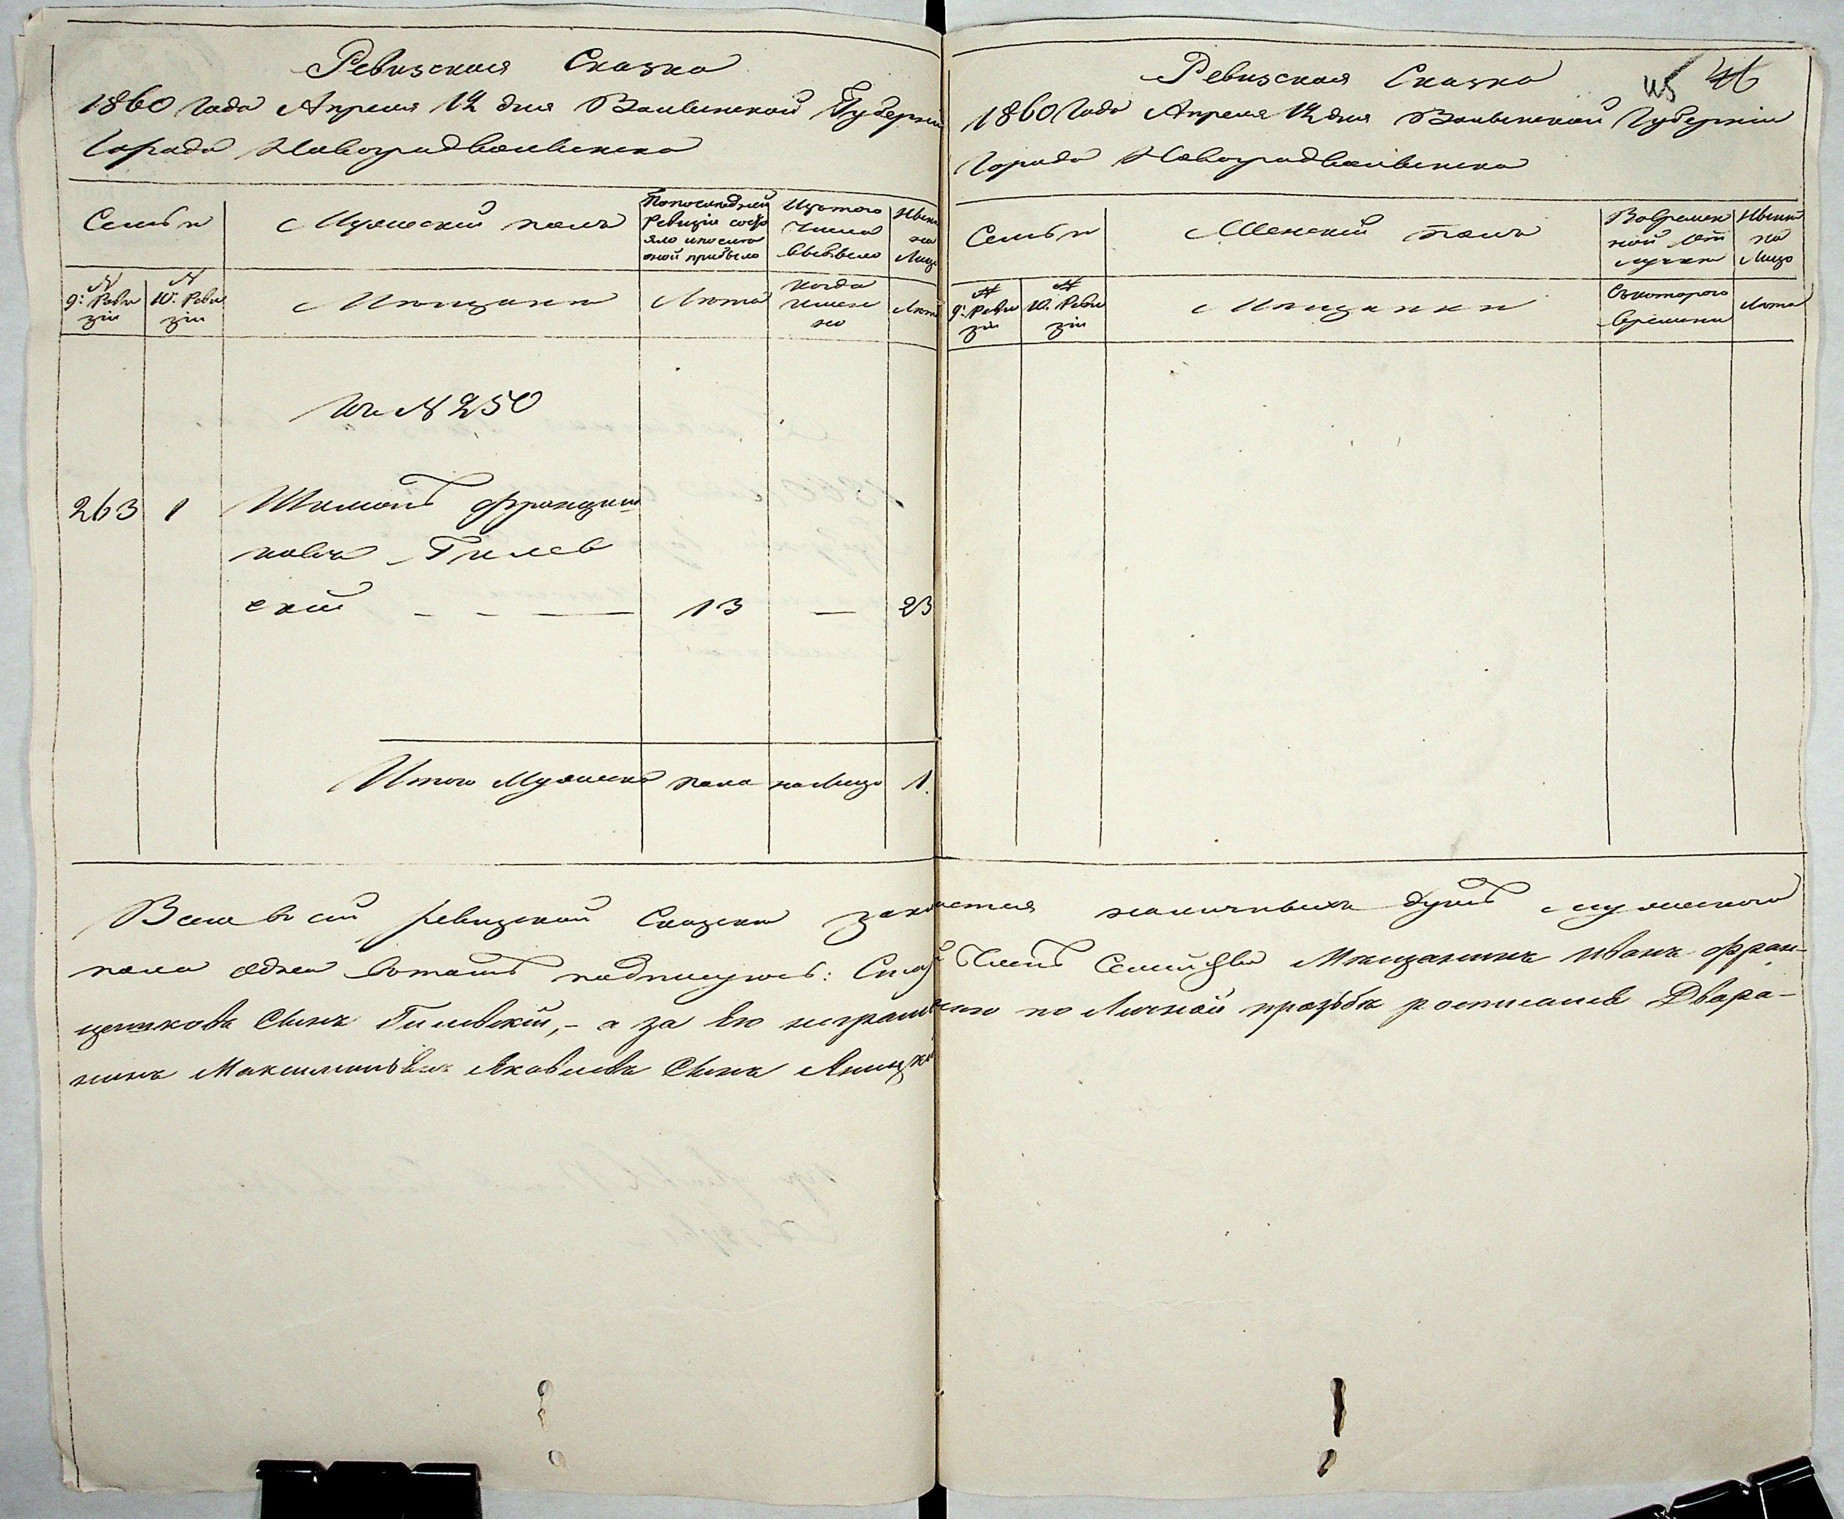 Ревизская Сказка
1860 Года Апреля 12 дня Волынской Губерніи
Города Новоградволынска
Семьи
Мужескій полъ
По последней
Ревизіи состо
яло и после
оной прибыло
Изъ того
Числа
выбыло
Ныне
на
Лицо
№
9й Реви
зіи
№
10й Реви
зіи
Мещане
Лета
Когда
Имен
но
Лета
Къ № 250
263 1 Шимонъ Франциш
ковъ Гилев
скій 13 — 23
Итого Мужеска пола на Лицо 1.
Ревизская Сказка
46
1860 Года Апреля 12 дня Волынской Губерніи
Города Новоградволынска
Семьи
Женскій полъ
Во времен
ной от
лучке
Ныне
на
Лицо
№
9й Реви
зіи
№
10й Реви
зіи
Мещанки
Съ котораго
времени
Лета
Всего в сей ревизской Сказки наличныхъ душъ мужескаго
пола одна в томъ подписуюсь: Сей Членъ Мещанинъ Иванъ Фран-
цишковъ Сынъ Гилевскій, - а за его неграмотного по Личной прозьбе росписался Двора-
нинъ Яковлевъ Сынъ